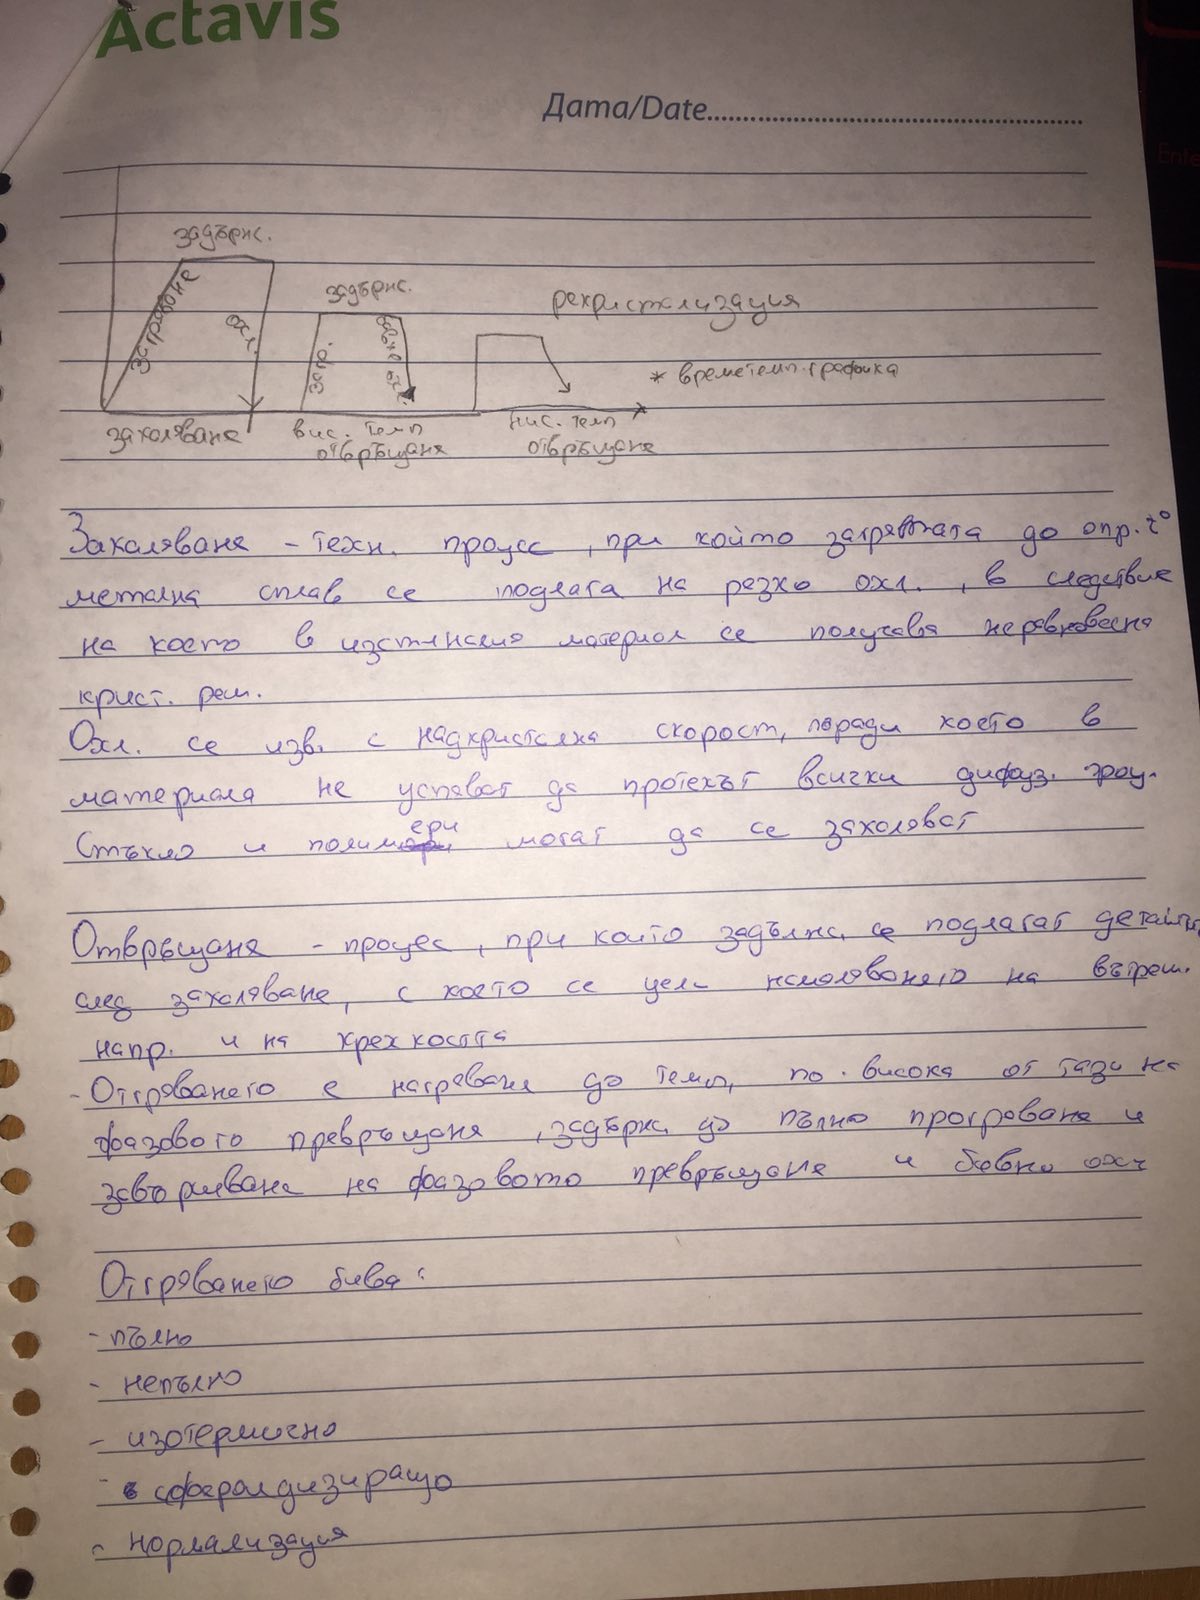 Actavis
Дата/Date
задърж.
задърж.
рекристализация
загряване
охл.
загр.
бавно охл.
* времетемп. графика
закаляване
вис. темп
отвръщане
нис. темп
отвръщане
Закаляване - техн. процес, при който загрятата до опр. t°
метална сплав се подлага на рязко охл., в следствие
на което в изстиналия материал се получава неравновесна
крист. реш.
Охл. се изв. с надкристална скорост, поради което в
материала не успяват да протекът всички дифуз. проц.
Стъкло и полимери могат да се закаляват
Отвръщане - процес, при който задълж. се подлагат детайлите
след закаляване, с което се цели намаляването на вътреш.
напр. и на крехкостта
- Отгряването е нагряване до темп, по-висока от тази на
фазовото превръщане, задърж. до пълно прогряване и
завършване на фазовото превръщане и бавно охл
Отгряването бива:
- пълно
- непълно
- изотермично
- сфероидизиращо
- нормализация